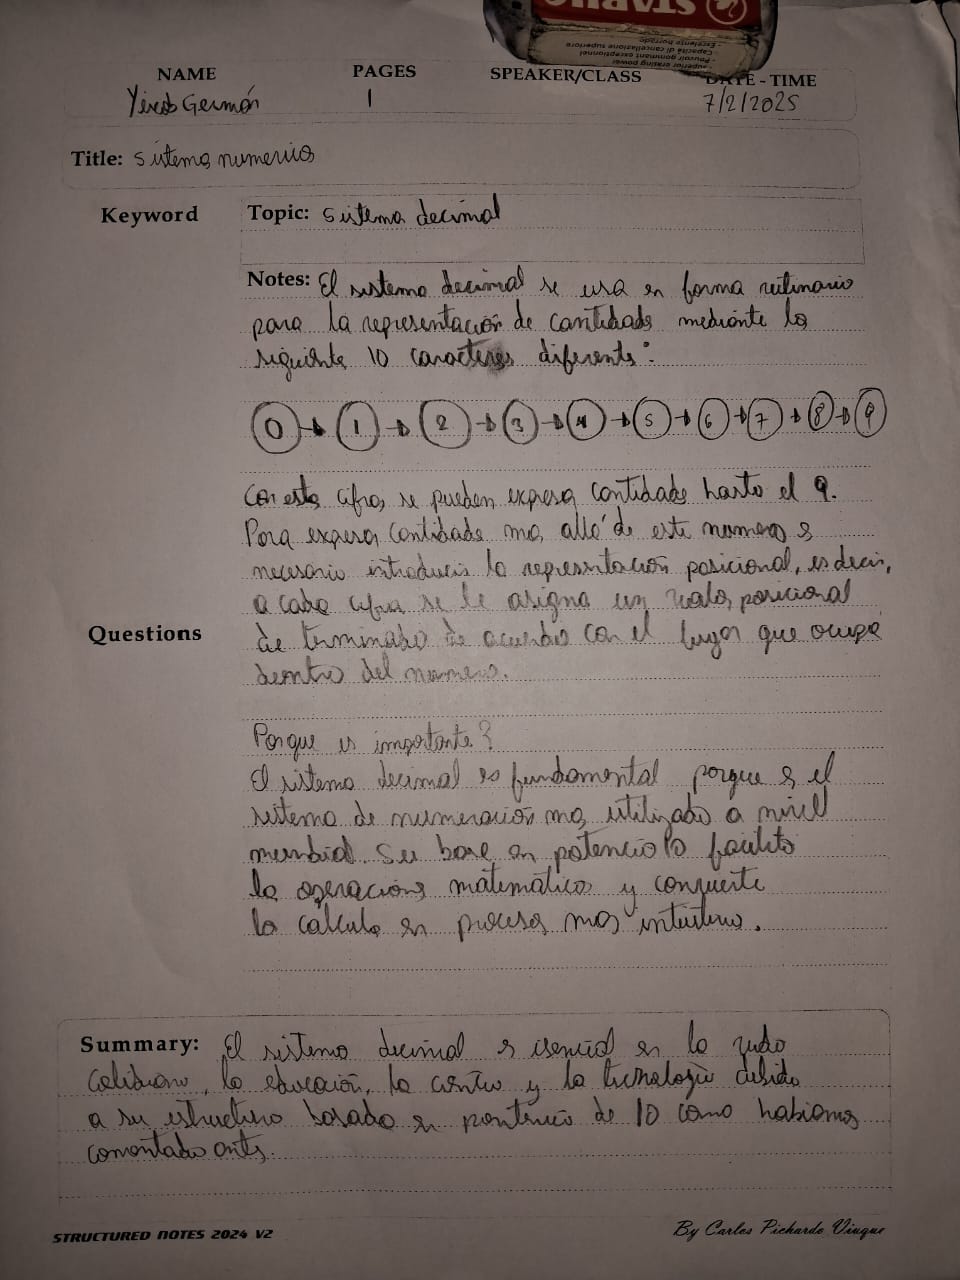 STARUC
- superior erasing power
- Pouvoir gommant exceptionnel
Capacità di cancellazione superiore
NAME PAGES SPEAKER/CLASS DATE - TIME
Germán 1 7/2/2025
Title: sistema numerico
Keyword Topic: sistema decimal
Notes: El sistema decimal se usa en forma rutinario
para la representación de cantidads mediante los
siguiente 10 caracteres diferents:
0 → 1 → 2 → 3 → 4 → 5 → 6 → 7 → 8 → 9
Con esta cifras se pueden expresa cantidads hasta el 9.
Para expresa cantidads mas allá de este numero es
necesario introducir la representación posicional, es decir,
a cada cifra se le asigna un valor posicional
Questions de terminado de acuerdo con el lugar que ocupa
dentro del numero.
Porque es importante?
El sistema decimal es fundamental porque es el
sistema de numeración mas utilizado a nivel
mundial su base en potencia 10 facilita
la operacions matematicas y convierte
lo calculo en proceso mas intuitivo.
Summary: El sistema decimal es esencial en la vida
cotidiana, la educación, la y la tecnologia debido
a su estructura basada en de 10 como habiamos
comentado ants.
STRUCTURED NOTES 2024 V2 By Carlos Pichardo Viuque